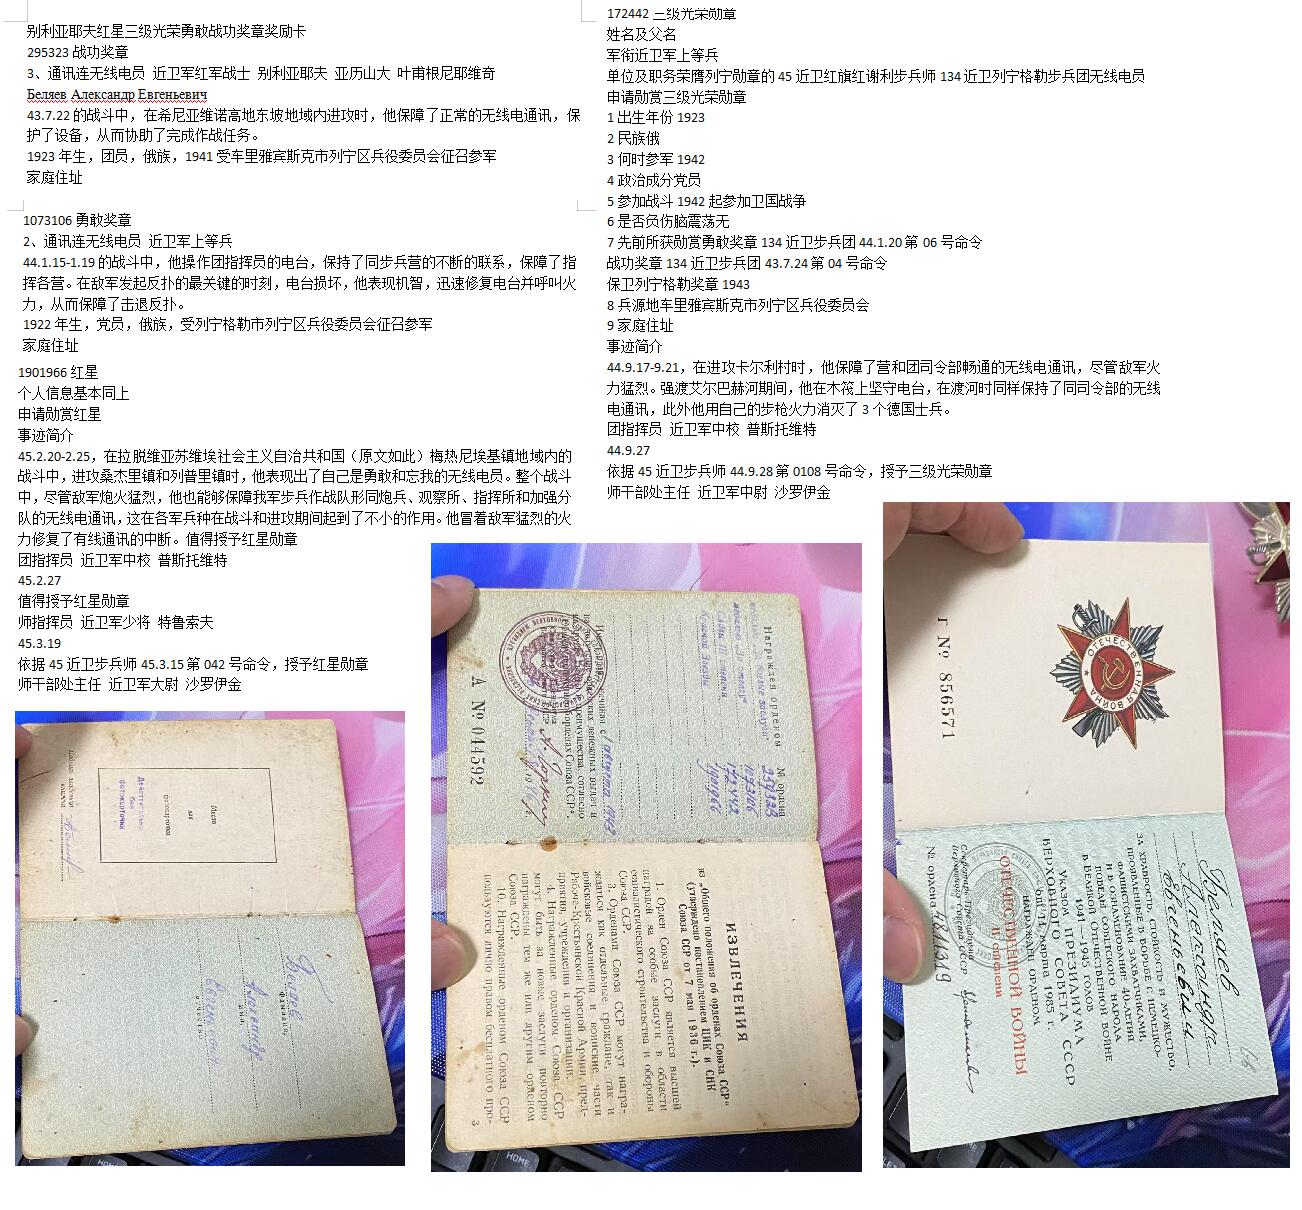 别利亚耶夫红星三级光荣勇敢战功奖章奖励卡
295323 战功奖章
3、通讯连无线电员 近卫军红军战士 别利亚耶夫 亚历山大 叶甫根尼耶维奇
Беляев Александр Евгеньевич
43.7.22 的战斗中，在希尼亚维诺高地东坡地域内进攻时，他保障了正常的无线电通讯，保
护了设备，从而协助了完成作战任务。
1923 年生，团员，俄族，1941 受车里雅宾斯克市列宁区兵役委员会征召参军
家庭住址
1073106 勇敢奖章
2、通讯连无线电员 近卫军上等兵
44.1.15-1.19 的战斗中，他操作团指挥员的电台，保持了同步兵营的不断的联系，保障了指
挥各营。在敌军发起反扑的最关键的时刻，电台损坏，他表现机智，迅速修复电台并呼叫火
力，从而保障了击退反扑。
1922 年生，党员，俄族，受列宁格勒市列宁区兵役委员会征召参军
家庭住址
1901966 红星
个人信息基本同上
申请勋赏红星
事迹简介
45.2.20-2.25，在拉脱维亚苏维埃社会主义自治共和国（原文如此）梅热尼埃基镇地域内的
战斗中，进攻桑杰里镇和列普里镇时，他表现出了自己是勇敢和忘我的无线电员。整个战斗
中，尽管敌军炮火猛烈，他也能够保障我军步兵作战队形同炮兵、观察所、指挥所和加强分
队的无线电通讯，这在各军兵种在战斗和进攻期间起到了不小的作用。他冒着敌军猛烈的火
力修复了有线通讯的中断。值得授予红星勋章
团指挥员 近卫军中校 普斯托维特
45.2.27
值得授予红星勋章
师指挥员 近卫军少将 特鲁索夫
45.3.19
依据 45 近卫步兵师 45.3.15 第 042 号命令，授予红星勋章
师干部处主任 近卫军大尉 沙罗伊金
172442 三级光荣勋章
姓名及父名
军衔近卫军上等兵
单位及职务荣膺列宁勋章的 45 近卫红旗红谢利步兵师 134 近卫列宁格勒步兵团无线电员
申请勋赏三级光荣勋章
1 出生年份 1923
2 民族俄
3 何时参军 1942
4 政治成分党员
5 参加战斗 1942 起参加卫国战争
6 是否负伤脑震荡无
7 先前所获勋赏勇敢奖章 134 近卫步兵团 44.1.20 第 06 号命令
战功奖章 134 近卫步兵团 43.7.24 第 04 号命令
保卫列宁格勒奖章 1943
8 兵源地车里雅宾斯克市列宁区兵役委员会
9 家庭住址
事迹简介
44.9.17-9.21，在进攻卡尔利村时，他保障了营和团司令部畅通的无线电通讯，尽管敌军火
力猛烈。强渡艾尔巴赫河期间，他在木筏上坚守电台，在渡河时同样保持了同司令部的无线
电通讯，此外他用自己的步枪火力消灭了 3 个德国士兵。
团指挥员 近卫军中校 普斯托维特
44.9.27
依据 45 近卫步兵师 44.9.28 第 0108 号命令，授予三级光荣勋章
师干部处主任 近卫军中尉 沙罗伊金
Место
для
фотокарточки
Действительно
без
фотокарточки
Беляев
фамилия
Александр
имя
Евгеньевич
отчество
Награжден орденом
№ ордена
1073106
172442
1901966
А № 044592
ИЗВЛЕЧЕНИЯ
из „Общего положения об орденах Союза ССР“
(Утверждено постановлением ЦИК и СНК
Союза ССР от 7 мая 1936 г.).
1. Орден Союза ССР является высшей
наградой за особые заслуги в области
социалистического строительства и обороны
Союза ССР.
3. Орденами Союза ССР могут награ-
ждаться как отдельные граждане, так и
войсковые соединения и воинские части
Рабоче-Крестьянской Красной Армии, пред-
приятия, учреждения и организации.
4. Награжденные орденом Союза ССР
могут быть за новые заслуги повторно
награждены тем же или другим орденом
Союза ССР.
10. Награжденные орденом Союза ССР
пользуются лично правом бесплатного про-
3
ОТЕЧЕСТВЕННАЯ ВОЙНА
Г № 856571
Беляев
Александр
Евгеньевич
ЗА ХРАБРОСТЬ, СТОЙКОСТЬ И МУЖЕСТВО,
ПРОЯВЛЕННЫЕ В БОРЬБЕ С НЕМЕЦКО-
ФАШИСТСКИМИ ЗАХВАТЧИКАМИ,
И В ОЗНАМЕНОВАНИЕ 40-ЛЕТИЯ
ПОБЕДЫ СОВЕТСКОГО НАРОДА
В ВЕЛИКОЙ ОТЕЧЕСТВЕННОЙ ВОЙНЕ
1941—1945 ГОДОВ
УКАЗОМ ПРЕЗИДИУМА
ВЕРХОВНОГО СОВЕТА СССР
ОТ 11 марта 1985 г.
НАГРАЖДЕН ОРДЕНОМ
ОТЕЧЕСТВЕННОЙ ВОЙНЫ
II степени
Секретарь Президиума
Верховного Совета СССР
№ ордена
HOME
HOME